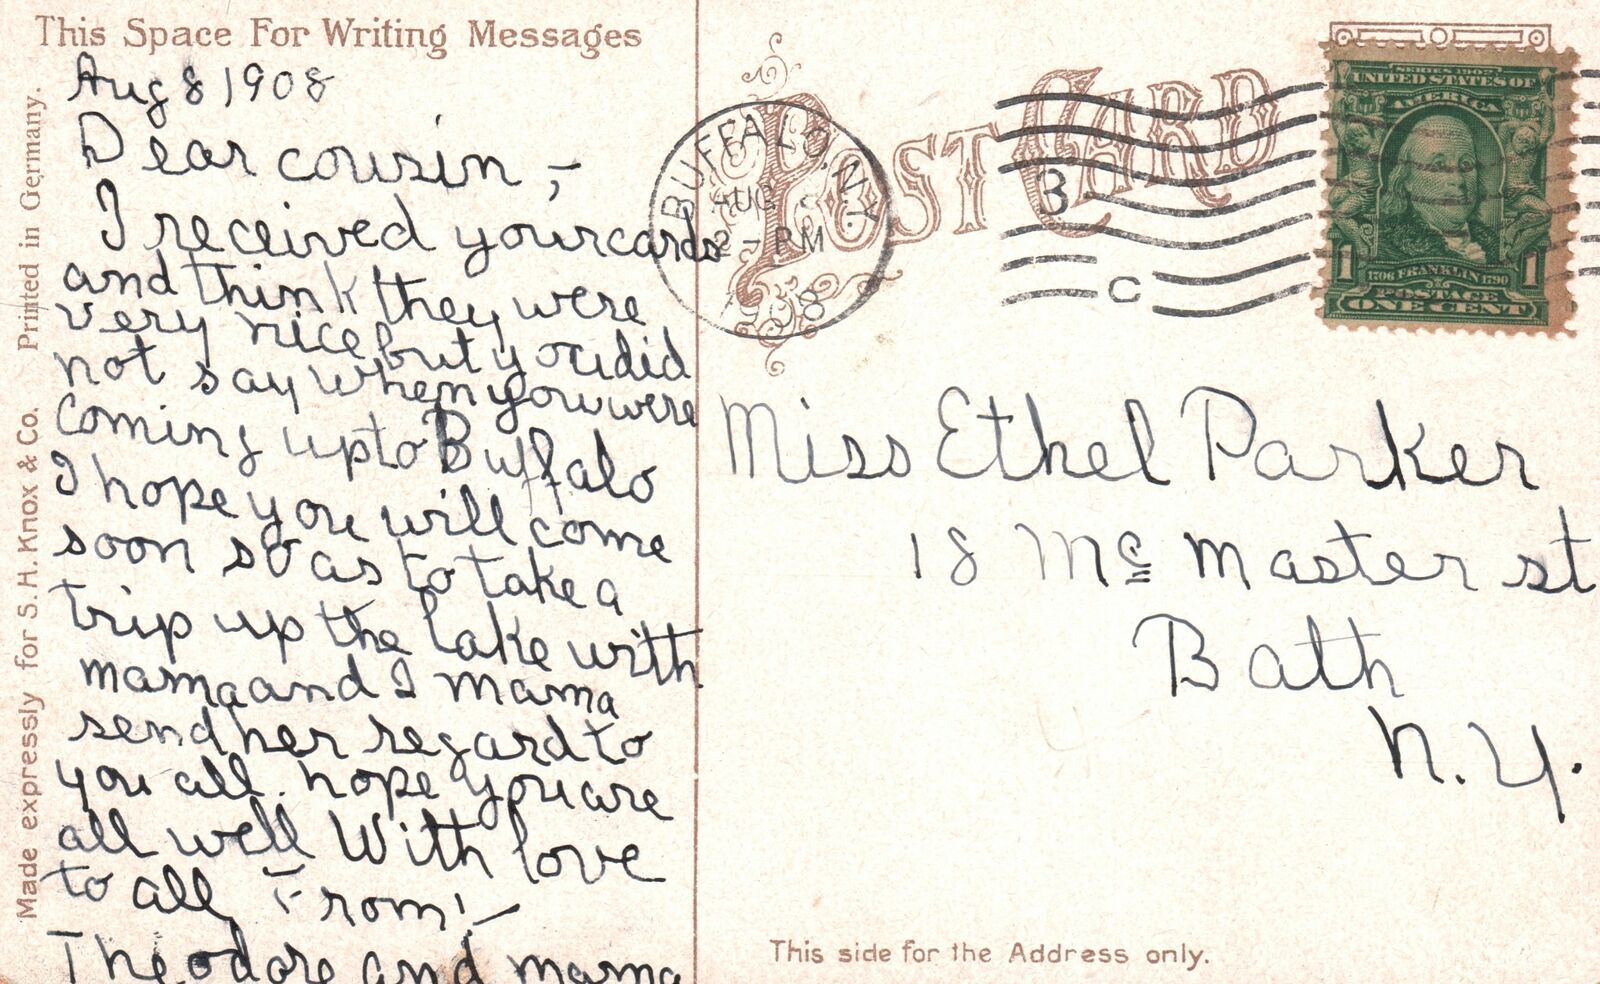 This Space For Writing Messages
Aug 8 1908
Dear cousin,-
I received your cards
and think they were
very nice but you did
not say when you were
coming up to Buffalo
I hope you will come
soon so as to take a
trip up the lake with
mama and I mama
send her regard to
you all. hope you are
all well With love
to all From:-
Theodore and mama
Made expressly for S. H. Knox & Co. Printed in Germany.
POST CARD
BUFFALO, N.Y.
AUG 8
2 - PM
1908
3
C
SERIES 1902
UNITED STATES OF
AMERICA
1 1
1706 FRANKLIN 1790
POSTAGE
ONE CENT
Miss Ethel Parker
18 Mc Master st
Bath
N. Y.
This side for the Address only.